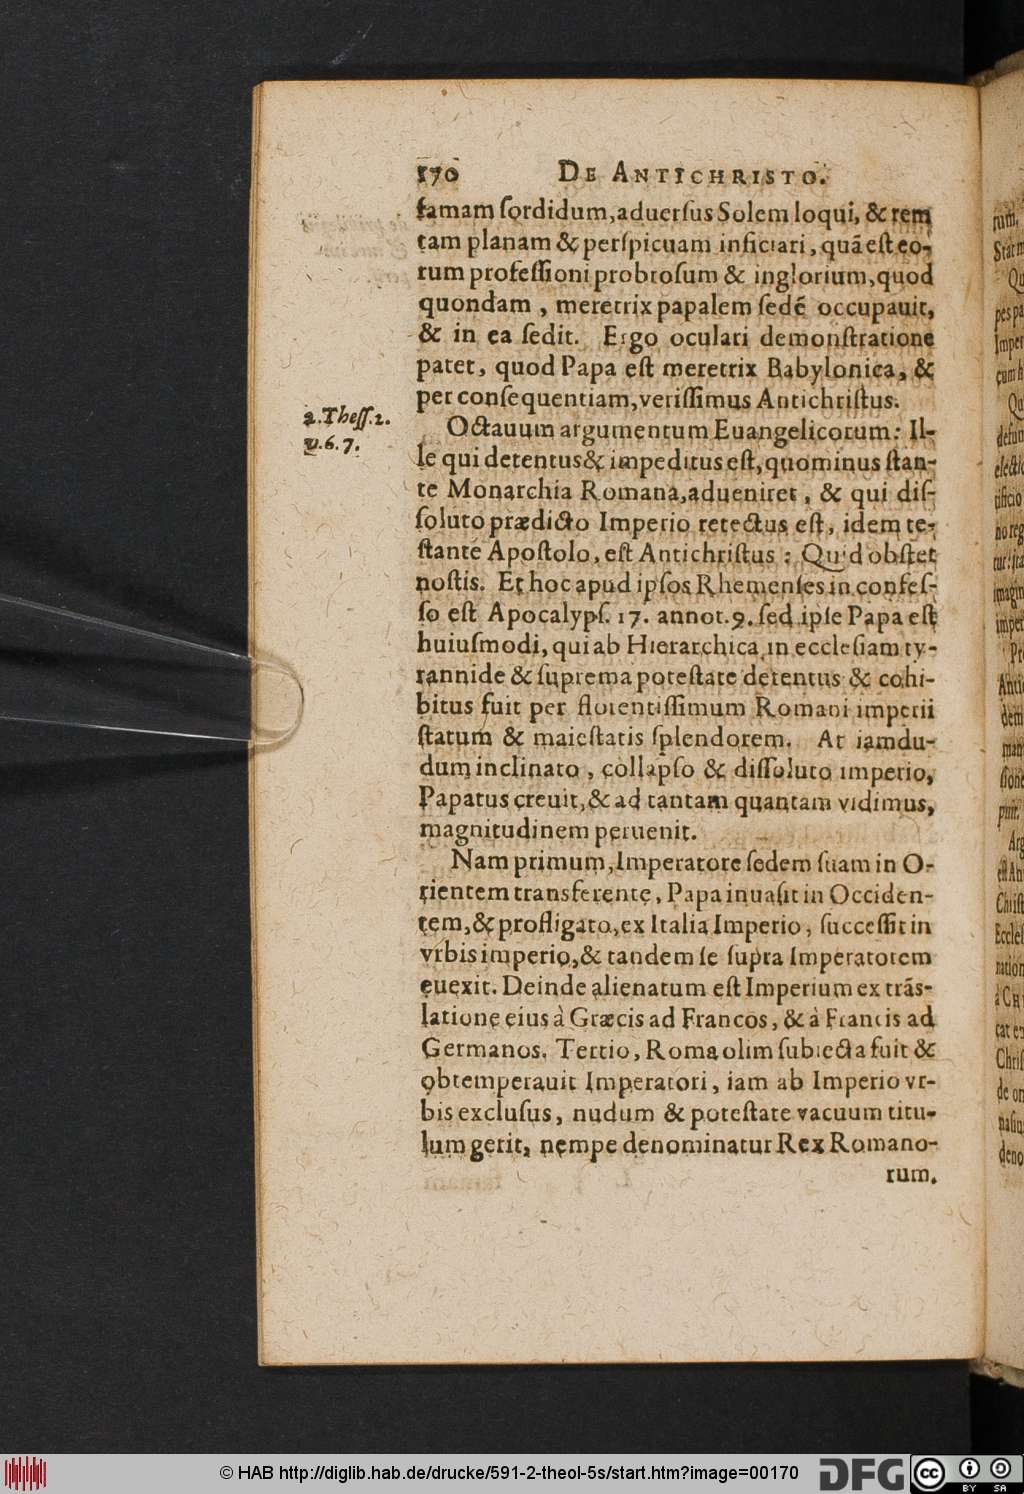 170 DE ANTICHRISTO.
famam ſordidum, aduerſus Solem loqui, & rem
tam planam & perſpicuam inficiari, quā eſt eo-
rum profeſſioni probroſum & inglorium, quod
quondam, meretrix papalem ſedē occupauit,
& in ea ſedit. Ergo oculari demonſtratione
patet, quod Papa eſt meretrix Babylonica, &
per conſequentiam, veriſſimus Antichriſtus.
2. Theſſ. 2.
v. 6. 7.
Octauum argumentum Euangelicorum: Il-
le qui detentus & impeditus eſt, quominus ſtan-
te Monarchia Romana, adueniret, & qui diſ-
ſoluto prædicto Imperio retectus eſt, idem te-
ſtante Apoſtolo, eſt Antichriſtus: Quid obſtet
noſtis. Et hoc apud ipſos Rhemenſes in confeſ-
ſo eſt Apocalypſ. 17. annot. 9. ſed ipſe Papa eſt
huiuſmodi, qui ab Hierarchica in eccleſiam ty-
rannide & ſuprema poteſtate detentus & cohi-
bitus fuit per florentiſſimum Romani imperii
ſtatum & maieſtatis ſplendorem. At iamdu-
dum inclinato, collapſo & diſſoluto imperio,
Papatus creuit, & ad tantam quantam vidimus,
magnitudinem peruenit.
Nam primum, Imperatore ſedem ſuam in O-
rientem transferente, Papa inuaſit in Occiden-
tem, & profligato, ex Italia Imperio, ſucceſſit in
vrbis imperio, & tandem ſe ſupra Imperatorem
euexit. Deinde alienatum eſt Imperium ex trāſ-
latione eius à Græcis ad Francos, & à Francis ad
Germanos. Tertio, Roma olim ſubiecta fuit &
obtemperauit Imperatori, iam ab Imperio vr-
bis excluſus, nudum & poteſtate vacuum titu-
lum gerit, nempe denominatur Rex Romano-
rum.
© HAB http://diglib.hab.de/drucke/591-2-theol-5s/start.htm?image=00170
DFG
cc BY SA